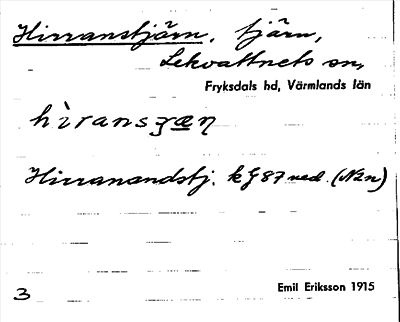 Hirranstjärn, tjärn,
Lekvattnets sn,
Fryksdals hd, Värmlands län
hìransʒæn̥
Hirranandstj. kg 87 ned. (N2n)
3
Emil Eriksson 1915